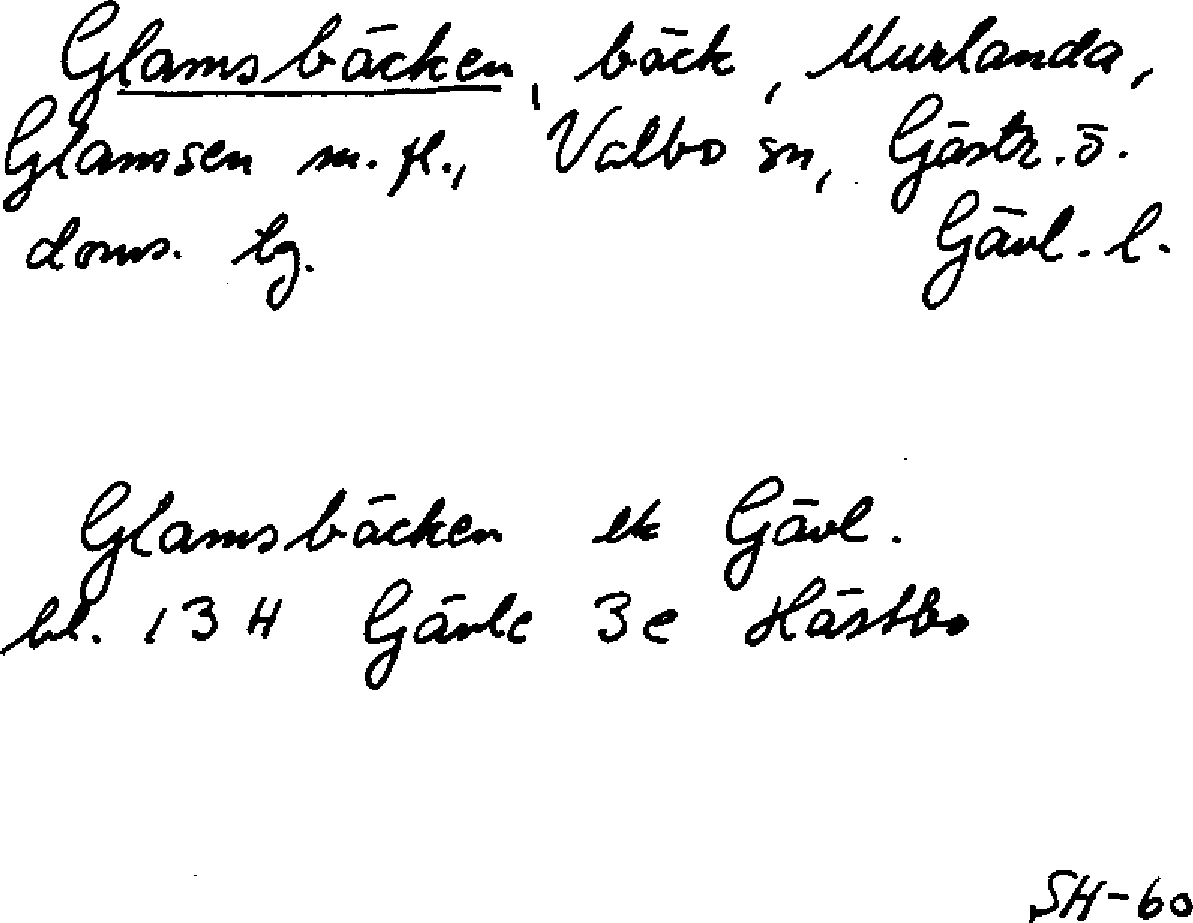 Glamsbäcken, bäck, Murlanda,
Glamsen m. fl., Valbo sn, Gästr. ö.
doms. lg. Gävl. l.
Glamsbäcken ek Gävl.
bl. 13 H Gävle 3e Hästbo
SH-60